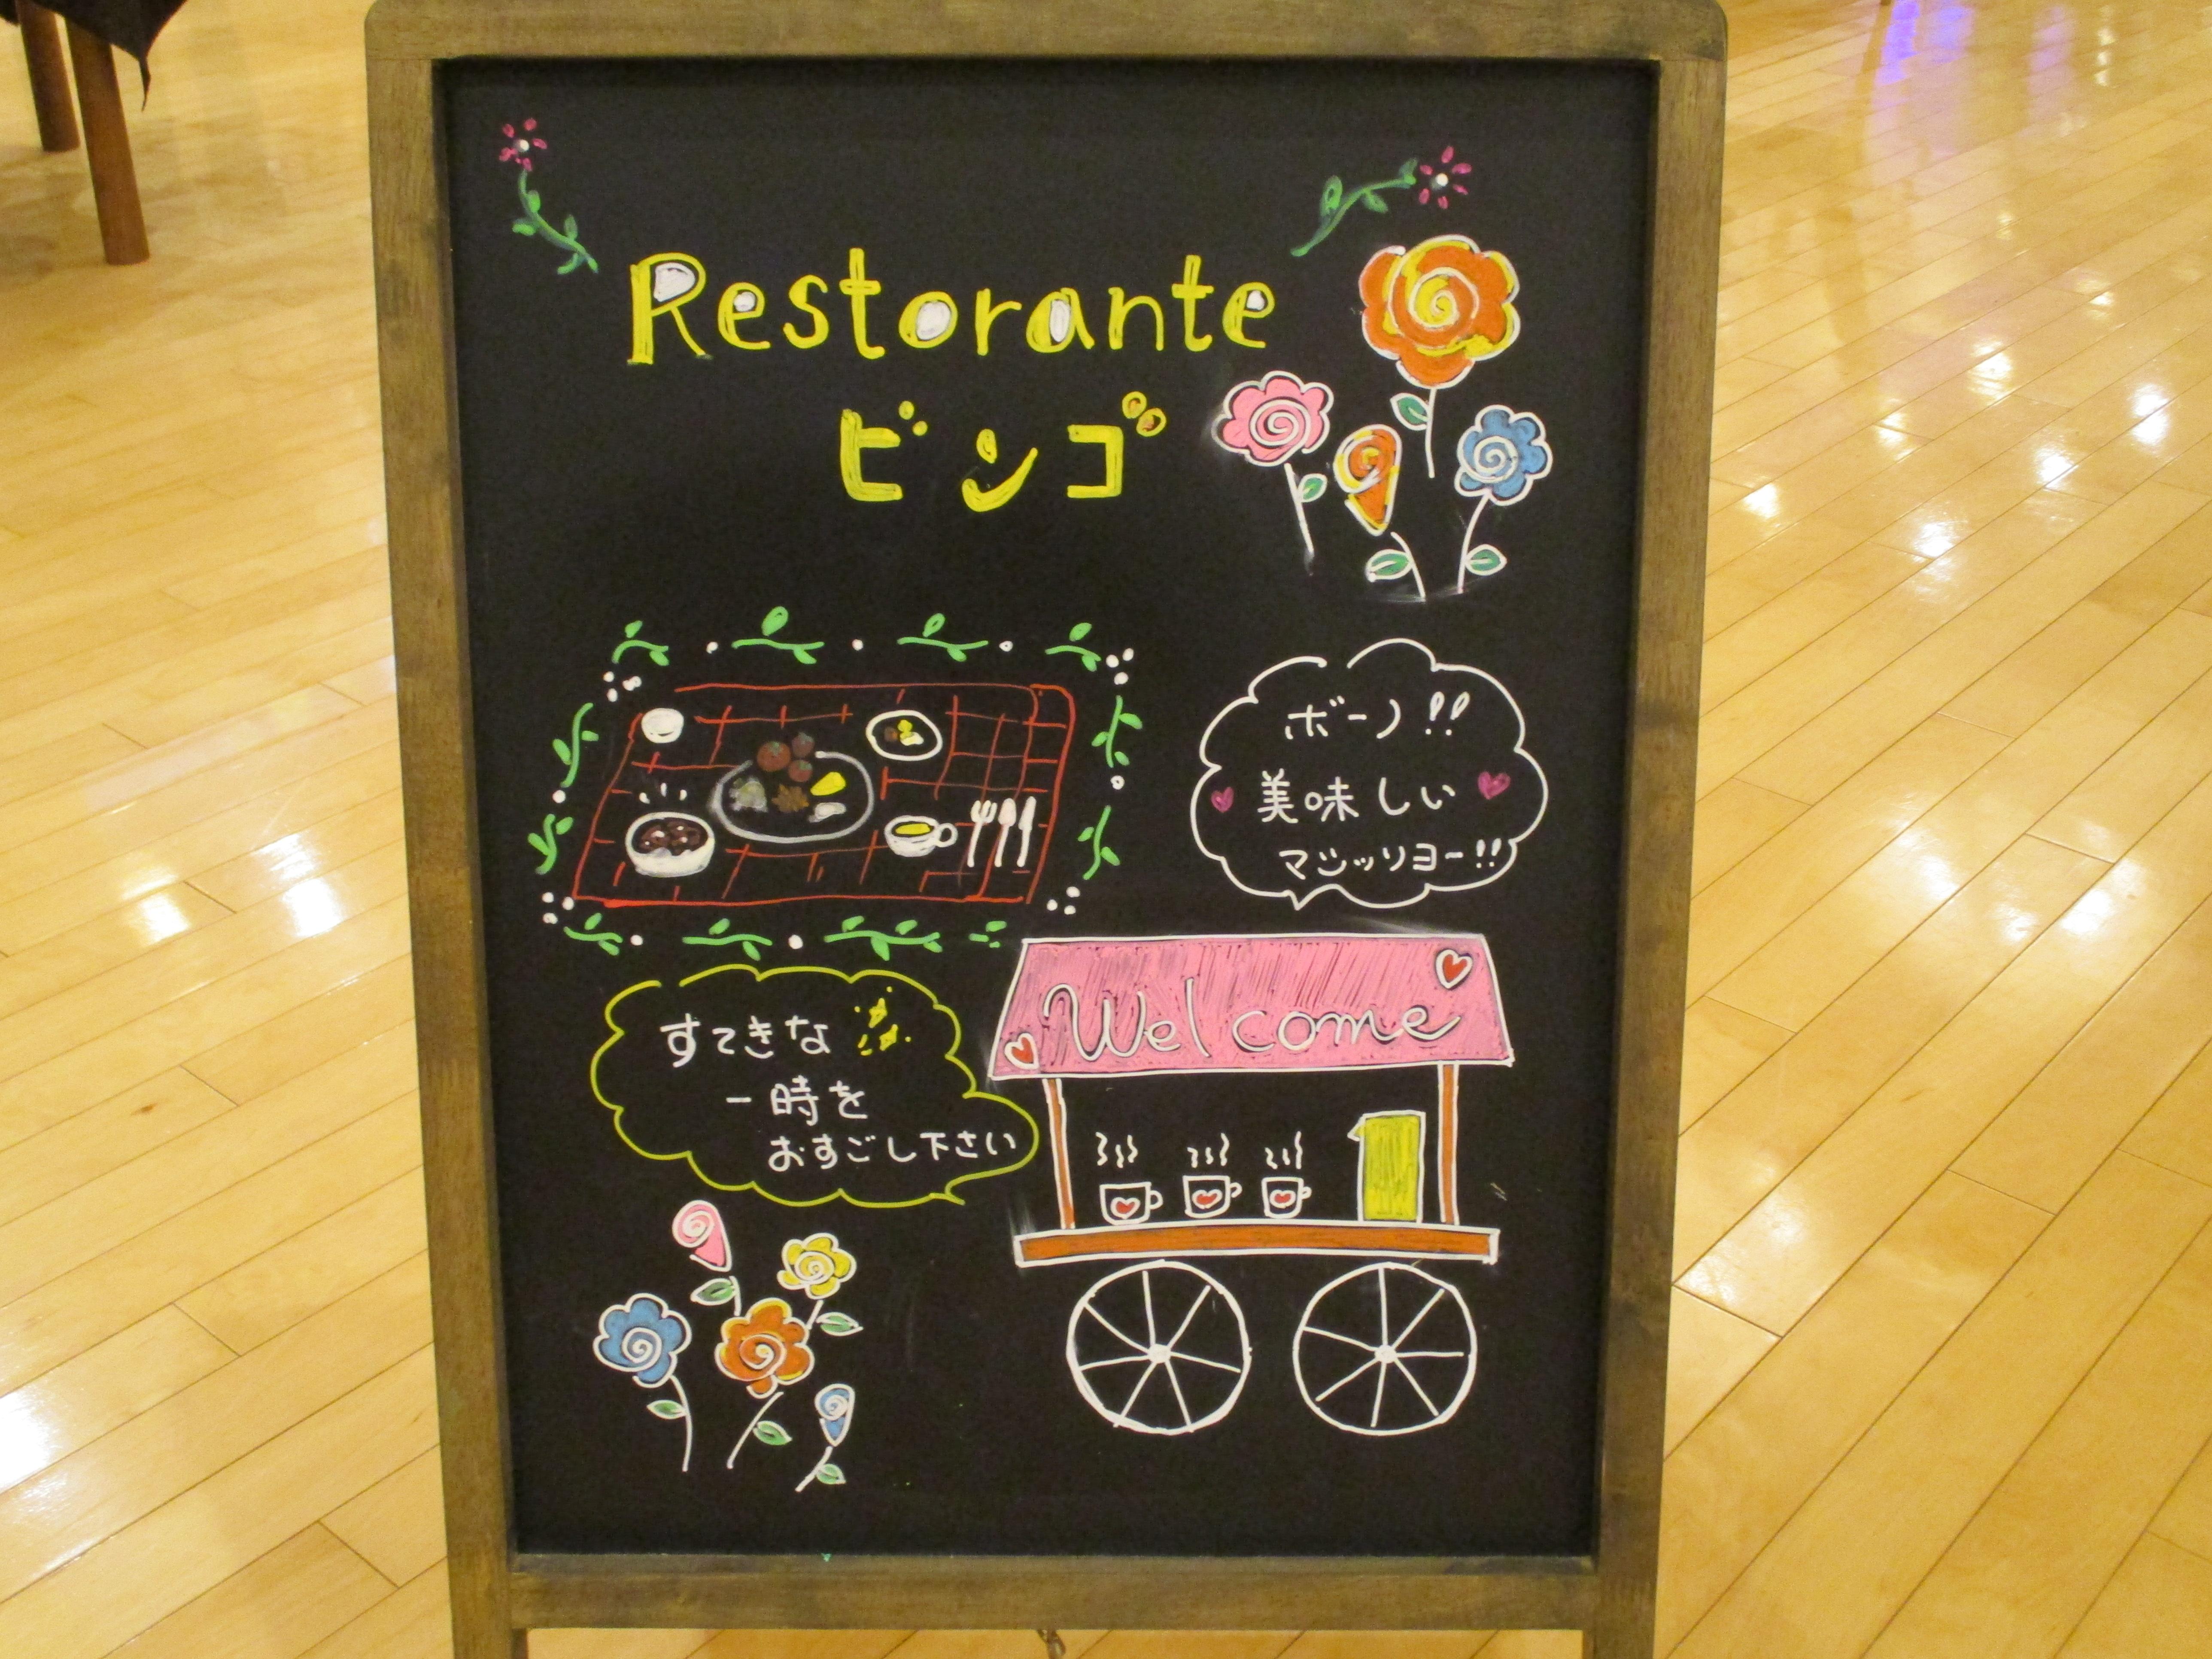 Restorante
ビンゴ
ボーノ!!
美味しい
マシッソヨー!!
すてきな
一時を
おすごし下さい
Welcome